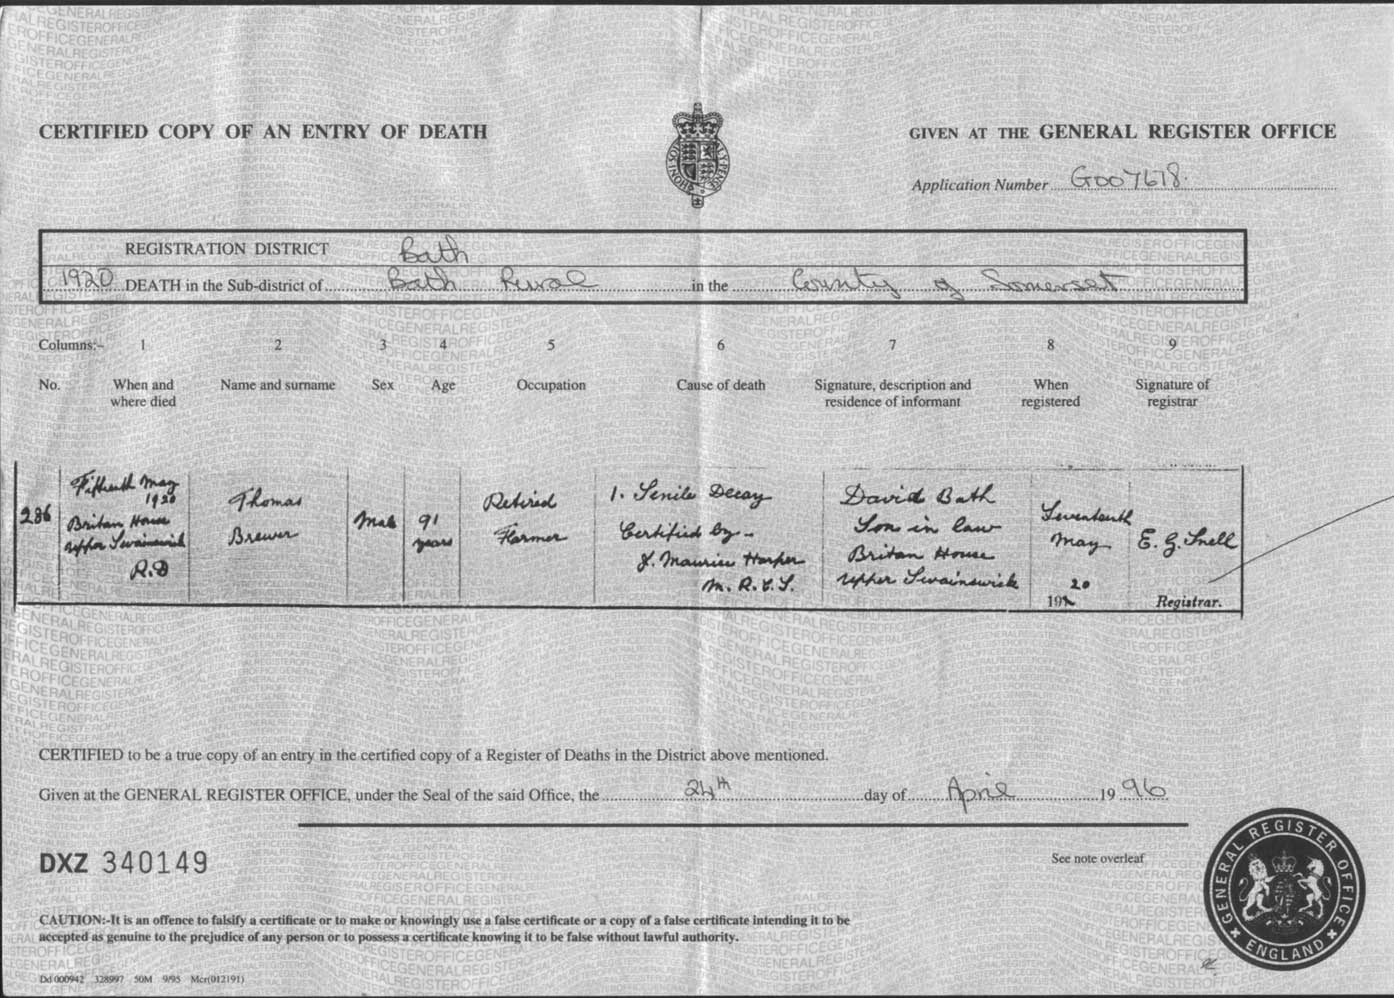 CERTIFIED COPY OF AN ENTRY OF DEATH
GIVEN AT THE GENERAL REGISTER OFFICE
Application Number G007618.
REGISTRATION DISTRICT Bath
1920 DEATH in the Sub-district of Bath Rural in the County of Somerset
Columns:- 1 2 3 4 5 6 7 8 9
No. When and where died Name and surname Sex Age Occupation Cause of death Signature, description and residence of informant When registered Signature of registrar
286
Fifteenth May
1920
Britan House
Upper Swainswick
R.D
Thomas
Brewer
Male
91
years
Retired
Farmer
1. Senile Decay
Certified by -
J. Maurice Harper
M. R. C. S.
David Bath
Son in law
Britan House
Upper Swainswick
Seventeenth
May
20
192
E. G. Snell
Registrar.
CERTIFIED to be a true copy of an entry in the certified copy of a Register of Deaths in the District above mentioned.
Given at the GENERAL REGISTER OFFICE, under the Seal of the said Office, the 24th day of April 1996
DXZ 340149
See note overleaf
CAUTION:-It is an offence to falsify a certificate or to make or knowingly use a false certificate or a copy of a false certificate intending it to be
accepted as genuine to the prejudice of any person or to possess a certificate knowing it to be false without lawful authority.
Dd 000942 328997 50M 9/95 Mcr(012191)
GENERAL REGISTER OFFICE
ENGLAND